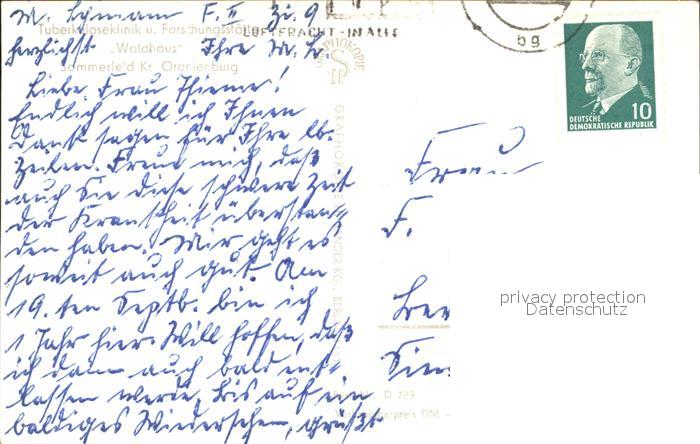 M. Lehmann F. II Zi. 9
Tuberkuloseklinik u. Forschungsst
LUFTFRACHT - IN ALLE
„Waldhaus"
herzlichst Ihre M. L.
Sommerfeld Kr. Oranienburg
Liebe Frau Thieme!
Endlich will ich Ihnen
Dank sagen für Ihre lb.
Zeilen. Freue mich, daß
auch Sie diese schwere Zeit
der Krankheit überstan-
den haben. Mir geht es
soweit auch gut. Am
19. ten Septb. bin ich
1 Jahr hier. Will hoffen, daß
ich dann auch bald ent-
lassen werde. Bis auf ein
baldiges Wiedersehen, grüßt
bg
DEUTSCHE
DEMOKRATISCHE REPUBLIK
10
Frau
F.
privacy protection
Datenschutz
D 783
Verbraucherpreis DM